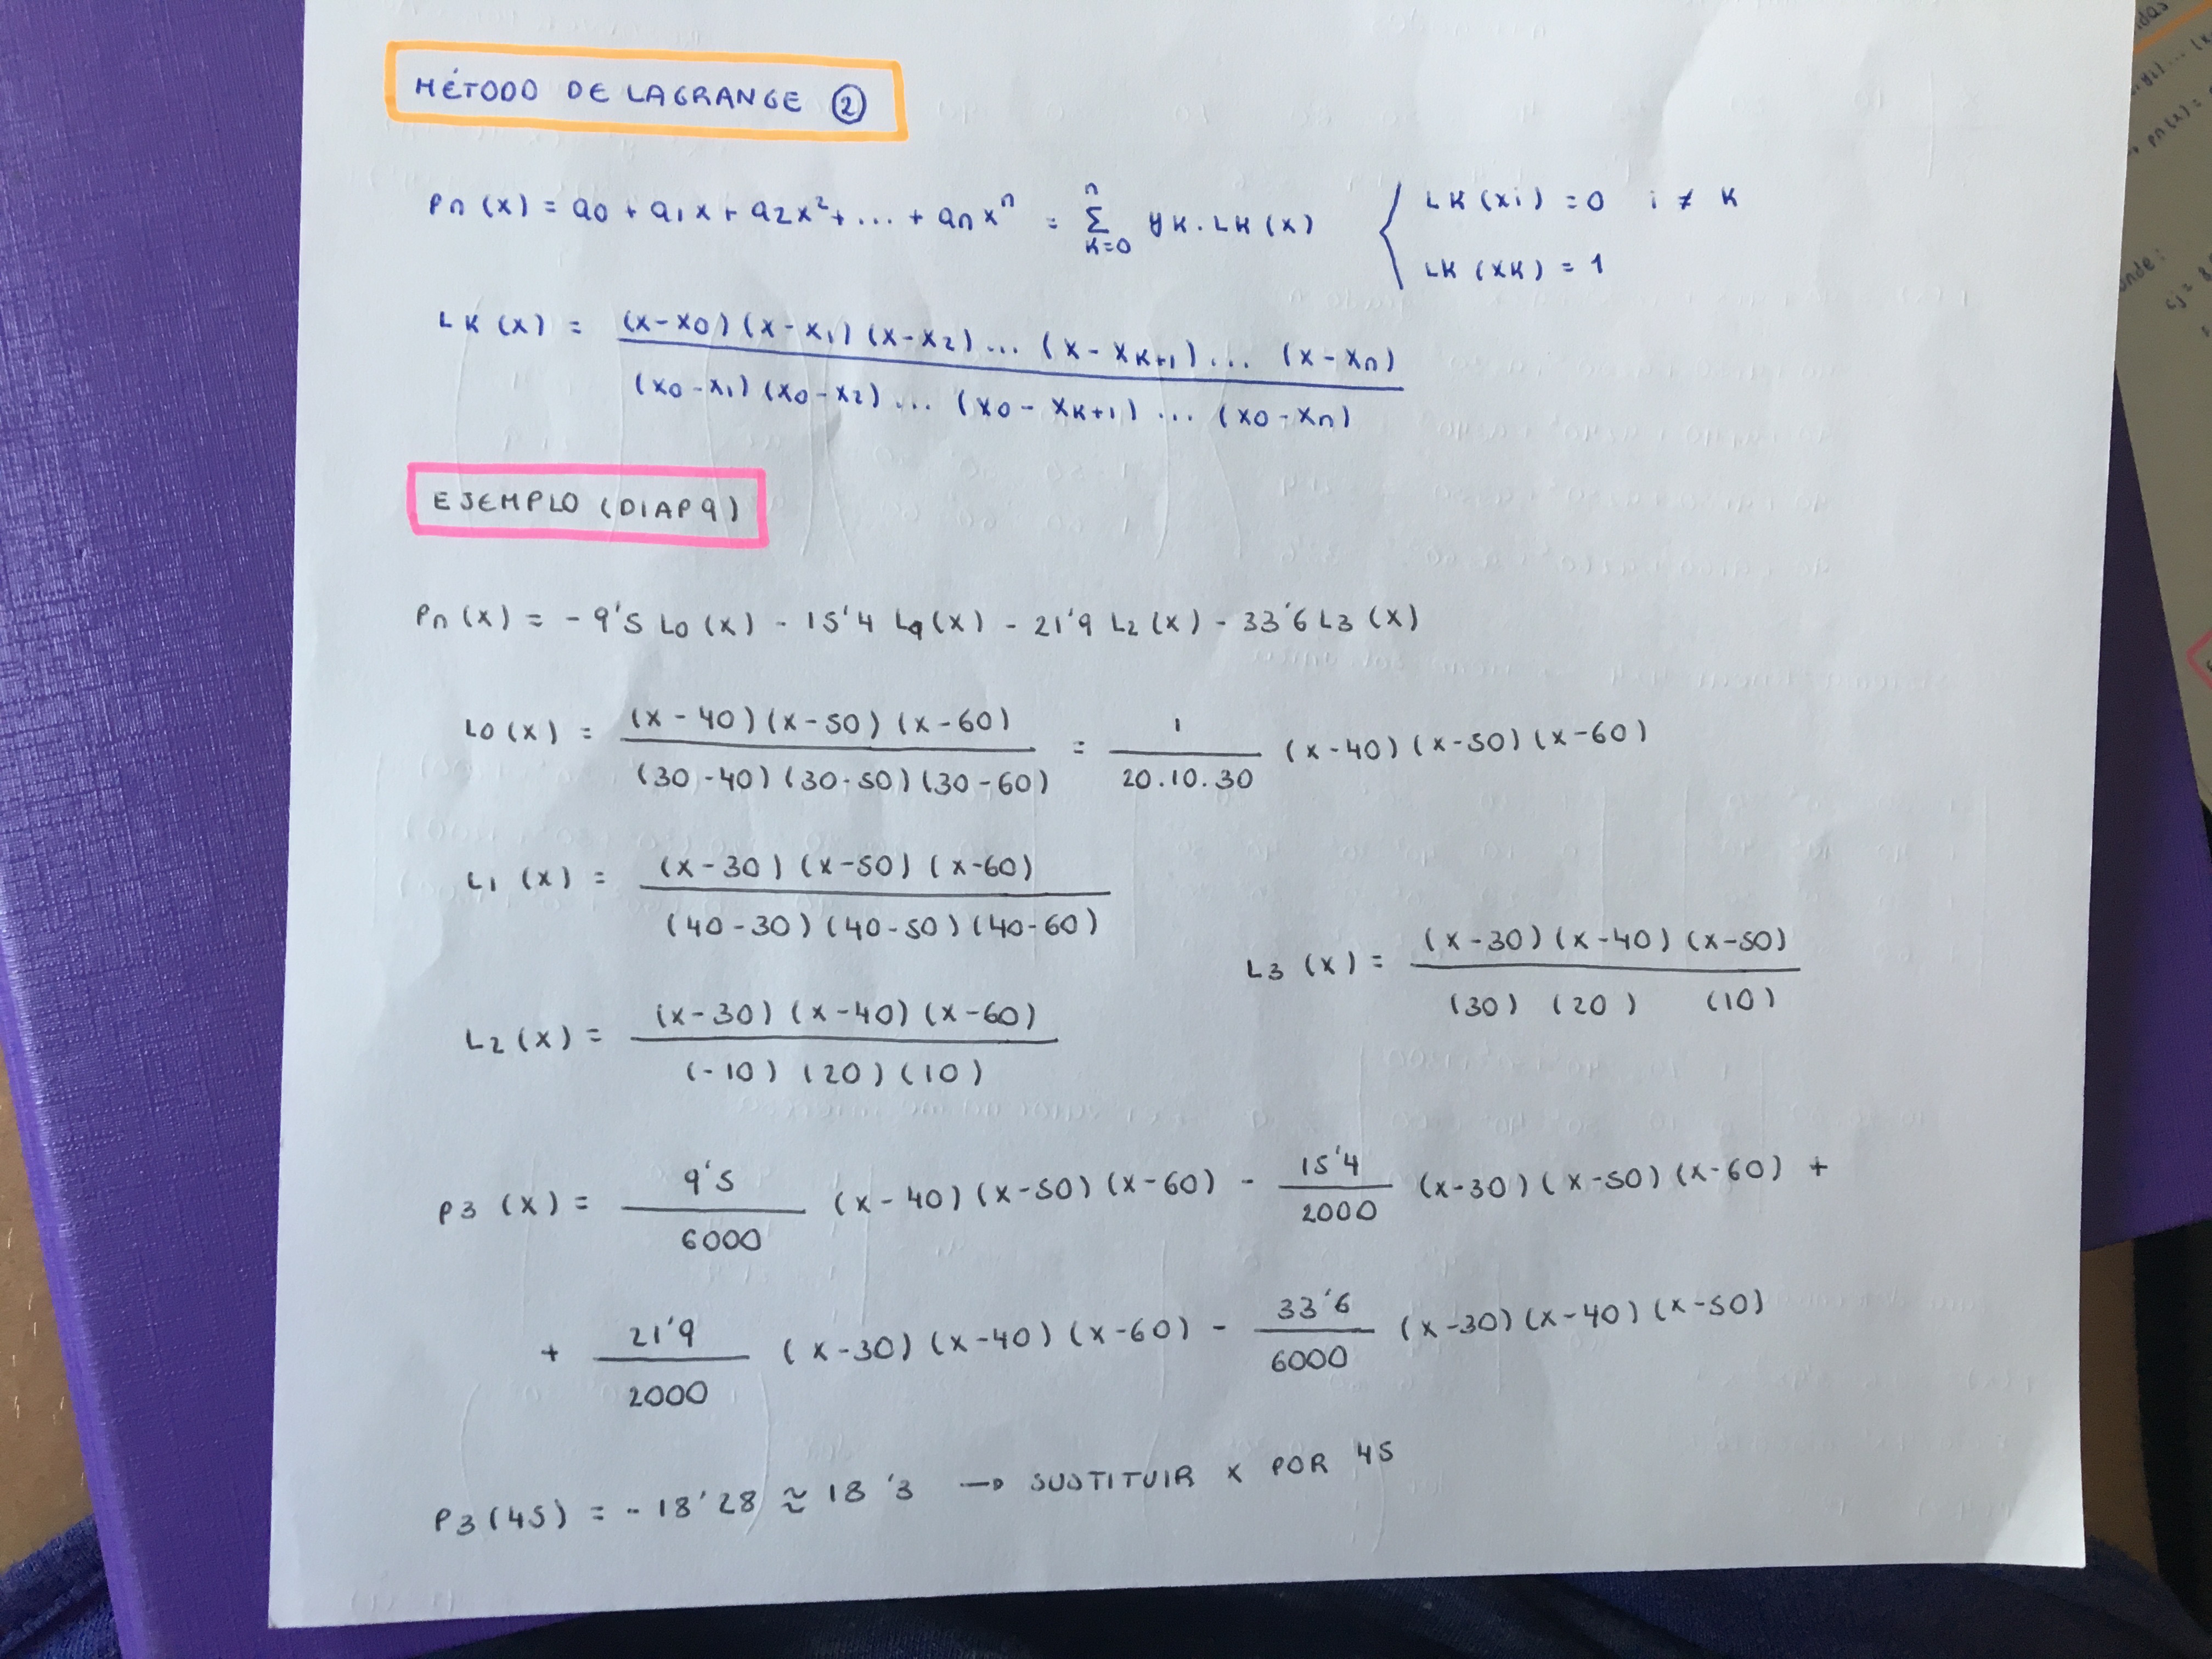 MÉTODO DE LAGRANGE ②
Pn (x) = a0 + a1x + a2x² + ... + anxⁿ = Σ (k=0, n) yk · Lk (x) { Lk (xi) = 0 i ≠ k
Lk (xk) = 1
Lk (x) = (x-x0) (x-x1) (x-x2) ... (x-xk+1) ... (x-xn)
(x0-x1) (x0-x2) ... (x0-xk+1) ... (x0-xn)
EJEMPLO (DIAP 9)
Pn (x) = - 9'5 L0 (x) - 15'4 L1 (x) - 21'9 L2 (x) - 33'6 L3 (x)
L0 (x) = (x-40) (x-50) (x-60) / (30-40) (30-50) (30-60) = 1 / 20.10.30 (x-40) (x-50) (x-60)
L1 (x) = (x-30) (x-50) (x-60) / (40-30) (40-50) (40-60)
L3 (x) = (x-30) (x-40) (x-50) / (30) (20) (10)
L2 (x) = (x-30) (x-40) (x-60) / (-10) (20) (10)
P3 (x) = 9'5 / 6000 (x-40) (x-50) (x-60) - 15'4 / 2000 (x-30) (x-50) (x-60) +
+ 21'9 / 2000 (x-30) (x-40) (x-60) - 33'6 / 6000 (x-30) (x-40) (x-50)
P3 (45) = - 18'28 ≈ 18'3 → SUSTITUIR x POR 45